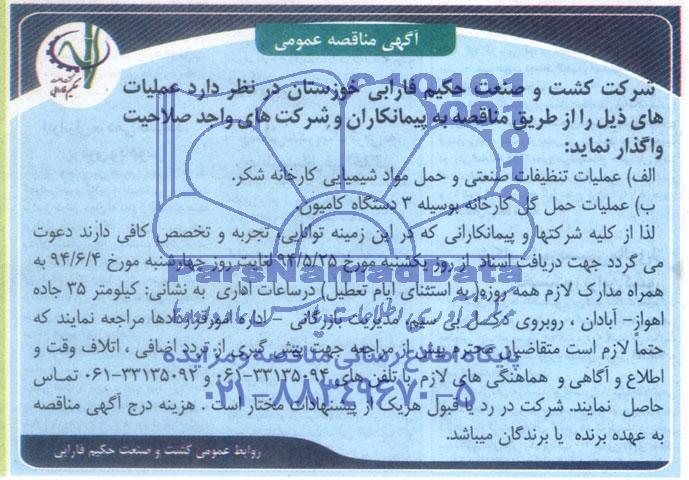 آگهی مناقصه عمومی
شرکت کشت و صنعت حکیم فارابی خوزستان در نظر دارد عملیات
های ذیل را از طریق مناقصه به پیمانکاران و شرکت های واجد صلاحیت
واگذار نماید:
الف) عملیات تنظیفات صنعتی و حمل مواد شیمیایی کارخانه شکر.
ب) عملیات حمل گل کارخانه بوسیله ۳ دستگاه کامیون.
لذا از کلیه شرکتها و پیمانکارانی که در این زمینه توانایی، تجربه و تخصص کافی دارند دعوت
می گردد جهت دریافت اسناد از روز یکشنبه مورخ ۹۴/۵/۲۵ لغایت روز چهارشنبه مورخ ۹۴/۶/۴ به
همراه مدارک لازم همه روزه( به استثنای ایام تعطیل) درساعات اداری به نشانی: کیلومتر ۳۵ جاده
اهواز- آبادان ، روبروی دکل بی سیم، مدیریت بازرگانی - اداره امورقراردادها مراجعه نمایند که
حتماً لازم است متقاضیان محترم پیش از مراجعه جهت پیش گیری از تردد اضافی ، اتلاف وقت و
اطلاع و آگاهی و هماهنگی های لازم با تلفن های ۳۳۱۳۵۰۹۴-۰۶۱ و ۳۳۱۳۵۰۹۲-۰۶۱ تماس
حاصل نمایند. شرکت در رد یا قبول هریک از پیشنهادات مختار است . هزینه درج آگهی مناقصه
به عهده برنده یا برندگان میباشد.
روابط عمومی کشت و صنعت حکیم فارابی
ParsNamadData
پایگاه اطلاع رسانی مناقصه و مزایده
۰۲۱-۸۸۳۴۹۶۷۰-۵